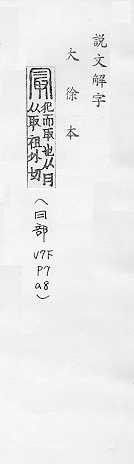 說文解字
大徐本
最
犯而取也从冃
从取祖外切
(冃部
V7F
P7
a8)